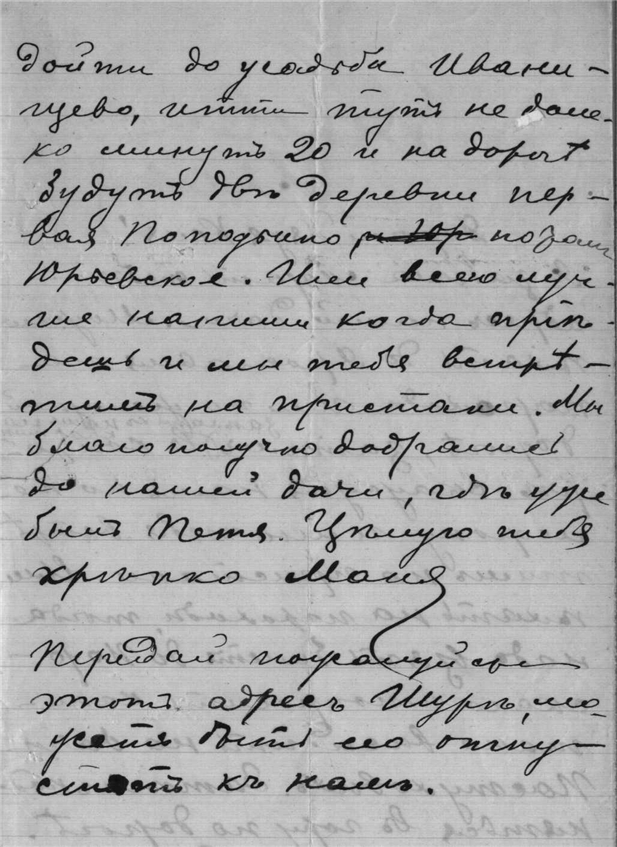 дойти до усадьбы Ивани-
щево, итти тутъ не дале-
ко минутъ 20 и на дорогѣ
будутъ двѣ деревни пер-
вая Поподьино, позади
Юрьевское. Или всего луч-
ше напиши когда прiѣ-
дешь и мы тебя встрѣ-
тимъ на пристани. Мы
благополучно добрались
до нашей дачи, гдѣ уже
былъ Петя. Цѣлую тебя
крѣпко Маня
Передай пожалуйста
этотъ адресъ Шурѣ, мо-
жетъ быть его отпу-
стятъ къ намъ.